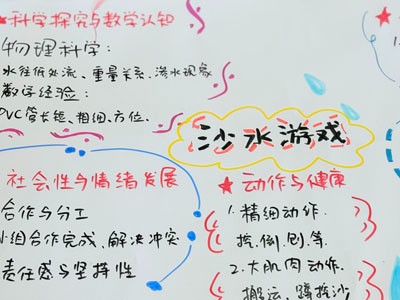 ★科学探究与数学认知
物理科学：
水往低处流、重量关系、渗水现象
数学经验：
PVC管长短、粗细、方位、
沙水游戏
社会性与情绪发展
合作与分工
小组合作完成、解决冲突
责任感与坚持性
★动作与健康
1.精细动作.
挖.倒.刨.等
2.大肌肉动作.
搬运.蹲挖沙